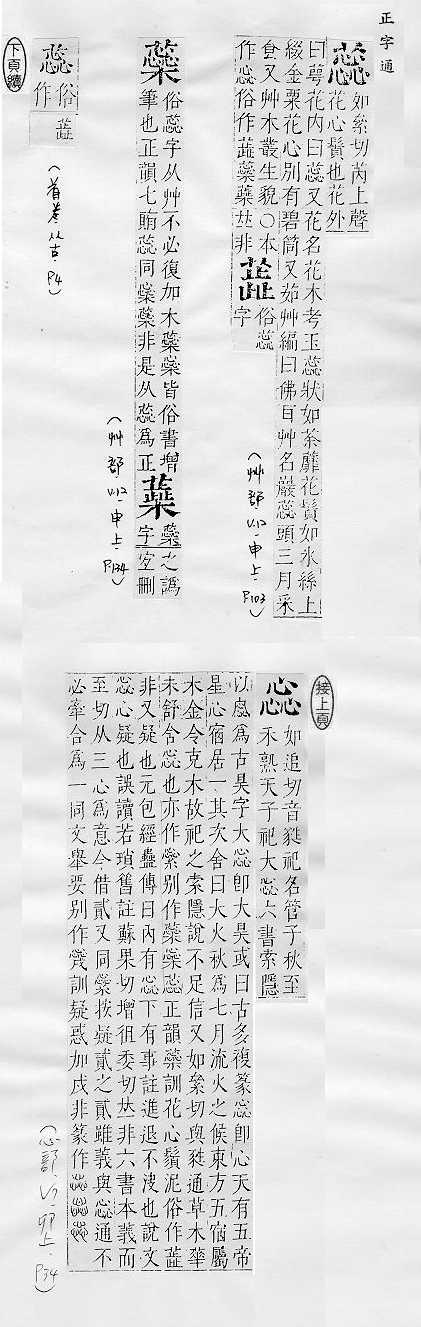 正字通
蕊 如絫切芮上聲
花心鬚也花外
曰萼花內曰蕊又花名花木考玉蕊狀如荼蘼花鬚如氷絲上
綴金粟花心別有碧筒又茹艸編曰佛百艸名巖蕊頭三月采
食又艸木叢生貌○本
作惢俗作蕋蘂橤𠀤非
蕋 俗蕊
字
(艸部.V.12.申上.P.103)
蘂 俗蕊字从艸不必復加木蘂橤皆俗書增
筆也正韻七賄蕊同橤蘂非是从惢爲正
蘃 蘂之譌
字宜刪
(艸部.V.12.申上.P.134)
蕊 俗蕋
作
(首卷从古.P4)
下頁續
接上頁
惢 如追切音蕤祀名管子秋至
禾熟天子祀大惢六書索隱
以惢爲古昊字大惢卽大昊或曰古多複篆惢卽心天有五帝
星心宿居一其次舍曰大火秋爲七月流火之候東方五宿屬
木金令克木故祀之索隱說不足信又如絫切與甤通草木華
未舒含惢也亦作繠別作蘂橤蕊正韻蘂訓花心鬚泥俗作蕋
非又疑也元包經蠱傳曰內有惢下有事註進退不決也說文
惢心疑也誤讀若瑣舊註蘇果切增徂委切𠀤非六書本義而
至切从三心爲意今借貳又同繠按疑貳之貳雖義與惢通不
必牽合爲一同文舉要別作訓疑惑加戌非篆作
(心部 卯上.P34)